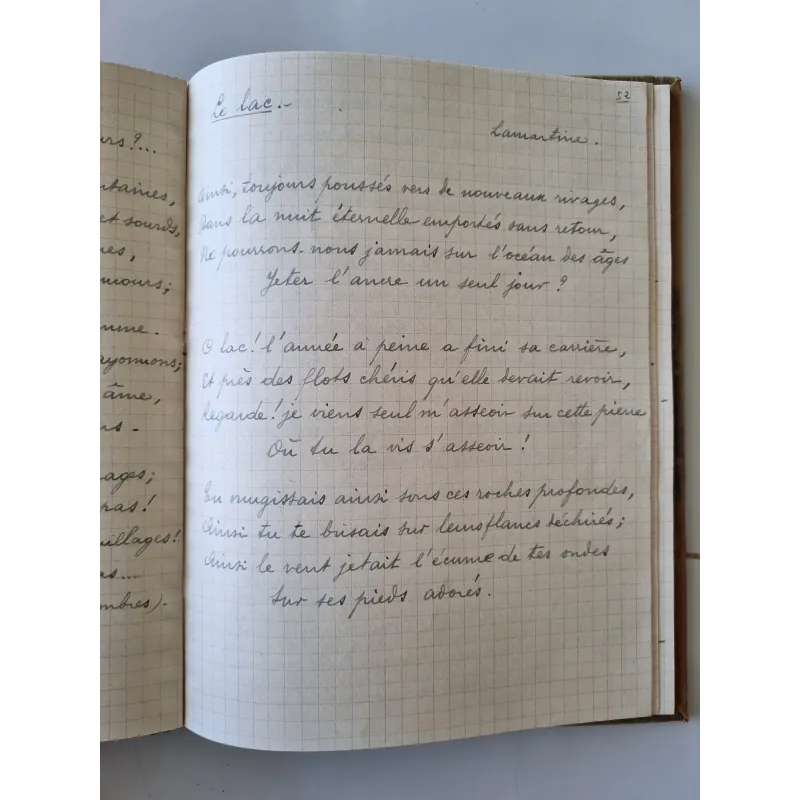 urs?...
ntaines,
et sourds,
es,
mours;
mme.
ayonnons;
âme,
ns.
ages;
pas!
uillages!
as....
ombres).
Le lac.-
52
Lamartine.
Ainsi, toujours poussés vers de nouveaux rivages,
Dans la nuit éternelle emportés sans retour,
Ne pourrons-nous jamais sur l'océan des âges
Jeter l'ancre un seul jour?
O lac! l'année à peine a fini sa carrière,
Et près des flots chéris qu'elle devait revoir,
Regarde! je viens seul m'asseoir sur cette pierre
Où tu la vis s'asseoir!
Tu mugissais ainsi sous ces roches profondes,
Ainsi tu te brisais sur leurs flancs déchirés;
Ainsi le vent jetait l'écume de tes ondes
Sur ses pieds adorés.